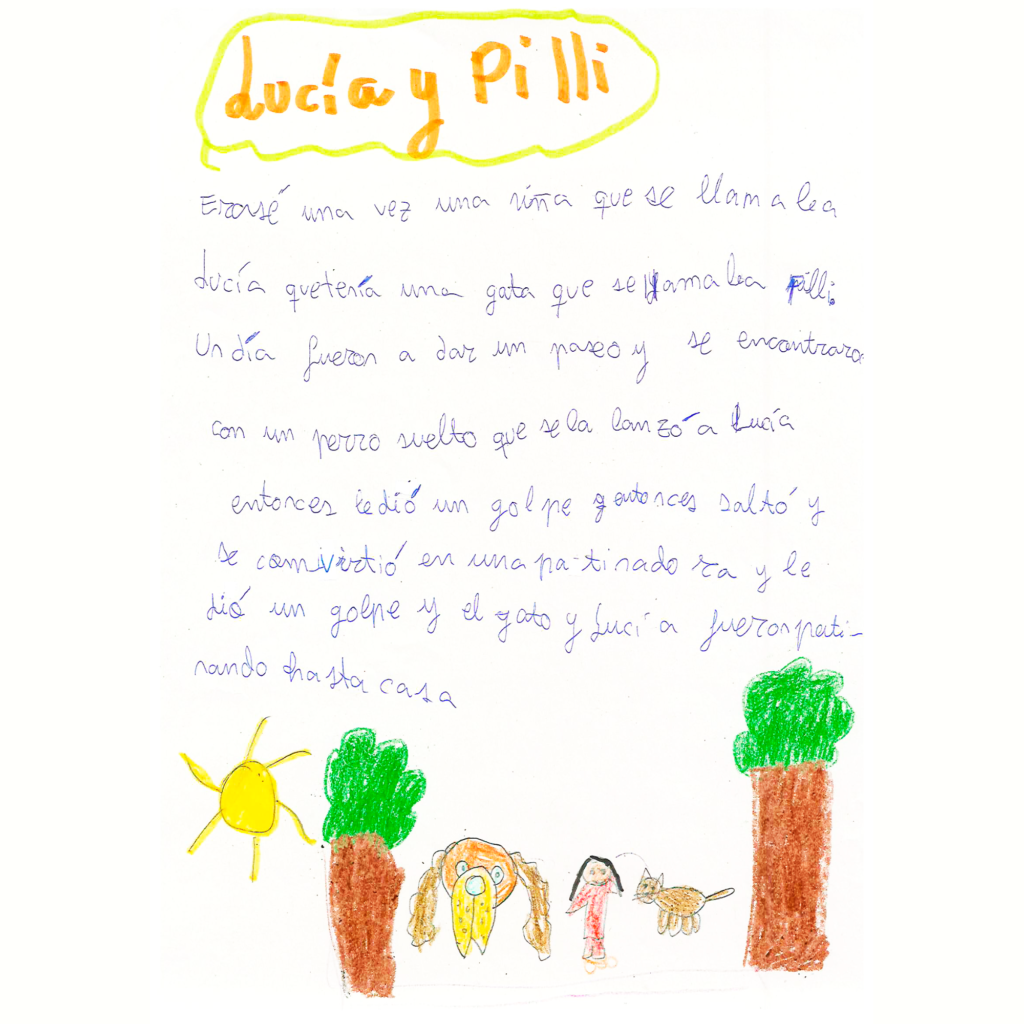 Lucía y Pilli
Erasé una vez una niña que se llamaba
Lucía quetenía una gata que se llamaba Pilli.
Un día fueron a dar un paseo y se encontraron
con un perro suelto que sela lanzó a Lucía
entonces ledió un golpe y entonces saltó y
se comvirtió en una patinadora y le
dió un golpe y el gato y Lucía fueron pati-
nando hasta casa